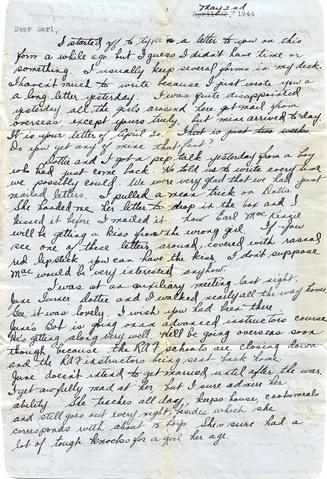 May 2nd
April 27, 1944
Dear Earl,
I started off to type you a letter to you on this
form a while ago but I guess I didn't have time or
something. I usually keep several forms in my desk.
I haven't much to write because I just wrote you
a long letter yesterday. I was quite disappointed
yesterday, all the girls around here got mail from
overseas except yours truly, but mine arrived to-day.
It is your letter of April 20. That is just two weeks.
Do you get any of mine that fast?
Dottie and I got a pep talk yesterday from a boy
who had just come back. He told us to write every time
we possibly could. We were very glad that we had just
mailed letters. I pulled a mean trick on Dottie.
She handed me her letter to drop in the box and I
kissed it before I mailed it. now Earl MacKenzie
will be getting a kiss from the wrong girl. If you
see one of those letters around, covered with
red lipstick you can have the kiss, I don't suppose
Mac would be very interested anyhow.
I was at an auxiliary meeting last night.
Jane Turner Dottie and I walked nearly all the way home.
Gee it was lovely. I wish you had been there.
June's Bob is going on an advanced instructors course
He's getting along very well. He'll be going overseas soon
though because the RAF schools are closing down
and the RAF instructors being sent back home.
June doesn't intend to get married until after the war.
I get awfully mad at her but I sure admire her
ability. She teaches all day, keeps house,
and still goes out every night, besides which she
corresponds with about 15 boys. She's sure had a
lot of tough knocks for a girl her age.